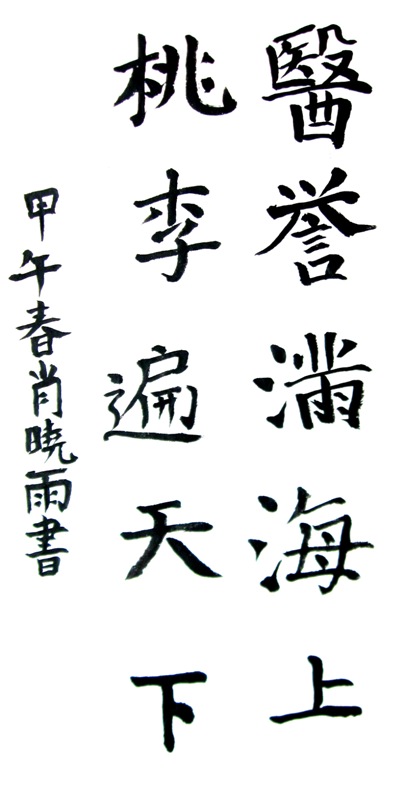 醫誉滿海上
桃李遍天下
甲午春肖曉雨書